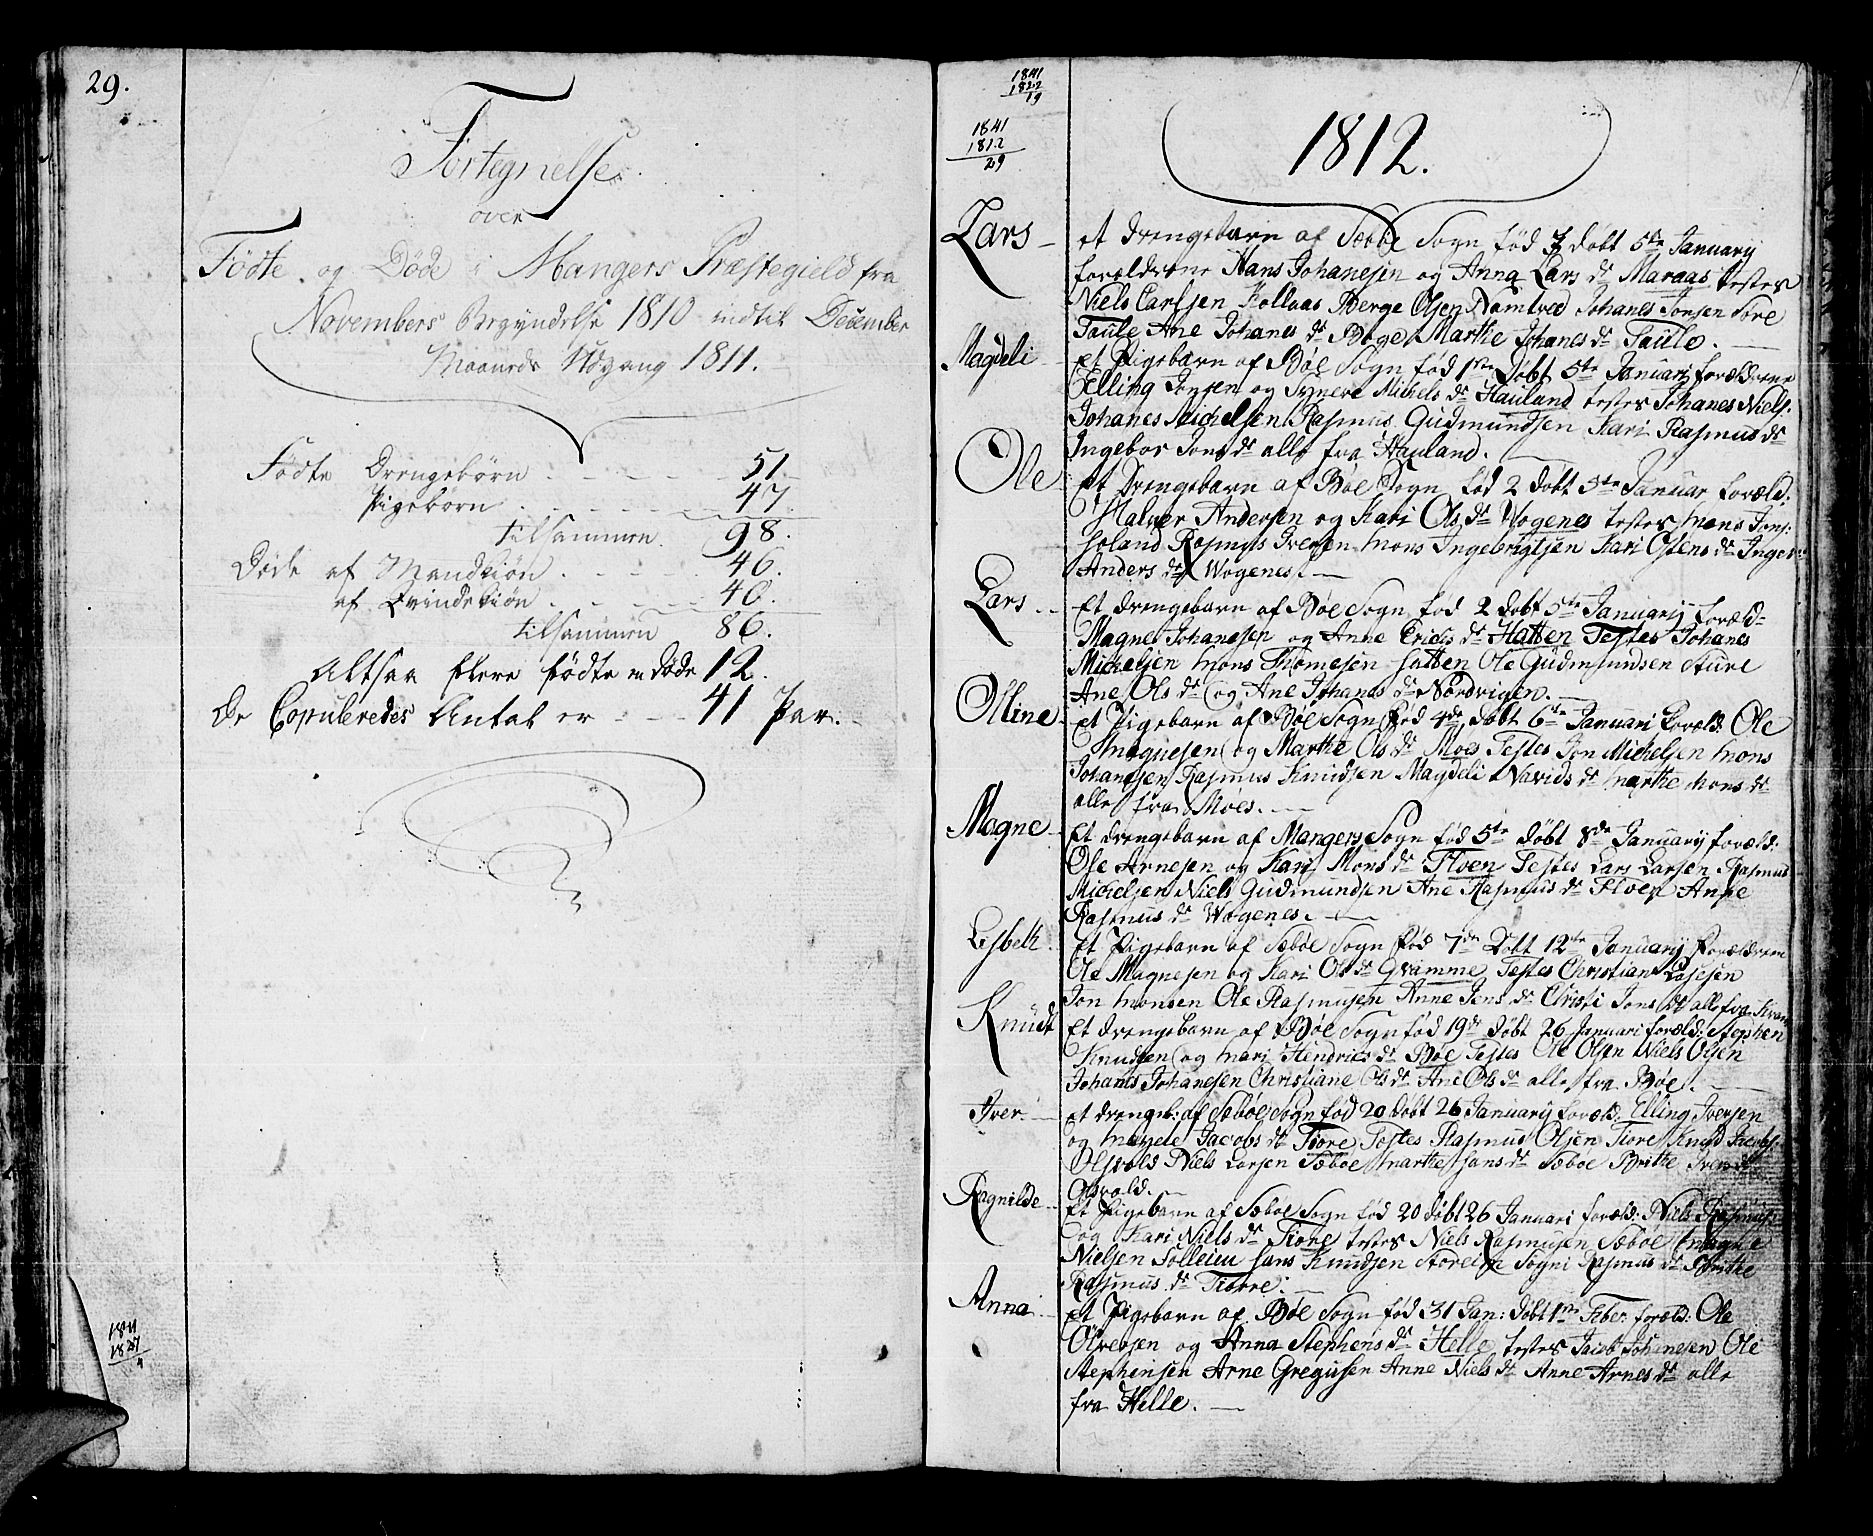 29.
Fortegnelse
over
Födte og Döde i Mangers Præstegield fra
Novembers Begyndelse 1810 indtil December
Maaneds Udgang 1811.
Födte Drengebörn 51.
Pigebörn 47.
tilsammen 98.
Döde af Mandkiön 46.
af Qvindekiön 40.
tilsammen 86.
Altsaa flere födte en döde 12.
De Copuleredes Antal er 41 Par.
1811
1841
1822
19
1841
1812
29
1812.
Lars et Drengebarn af Sæböe Sogn föd 3 döbt 5te January
forældrene Hans Johanesen og Anna Lars dr Maraas testes
Niels Carlsen Kollaas Berge Olsen Namtved Johanes Jonsen Töre
Taule Ane Johanes dr Boge Marthe Johanes dr Taule.
Magdeli et Pigebarn af Böe Sogn föd 1ste döbt 5te Januari forældrene
Elling Jensen og Synneve Michels dr Hauland testes Johanes Niels:
Johanes Michelsen Rasmus Gudmundsen Kari Rasmus dr
Ingebor Jons dr alle fra Hauland.
Ole et Drengebarn af Böe Sogn föd 2 döbt 5te Januar foræld:
Halver Andersen og Kari Ols dr Wogenes testes Mons Jons:
Rasmus Iversen Mons Ingebrigtsen Kari Ostens dr
Anders dr Wogenes.
Lars Et drengebarn af Böe Sogn föd 2 döbt 5te January foræld:
Magne Johanesen og Anne Erichs dr Hatten Testes Johanes
Michelsen Mons Thomesen Hatten Ole Gudmundsen Sture
Ane Ols dr og Ane Johanes dr Nordvigen.
Olline et Pigebarn af Böe Sogn föd 4de döbt 6te Januari Foræld: Ole
Magnesen og Marthe Ols dr Moes Testes Jon Michelsen Mons
Johanesen Rasmus Knudsen Magdeli Navids dr Marthe Mons dr
alle fra Moes.
Magne Et drengebarn af Mangers Sogn föd 5te döbt 8de January foræld:
Ole Arnesen og Kari Mons dr Floen Testes Lars Larsen Rasmus
Michelsen Niels Gudmundsen Ane Rasmus dr Floen Anne
Rasmus dr Wogenes.
Lisbeth Et Pigebarn af Sæböe Sogn föd 7de Döbt 12te January Forældrene
Ole Magnesen og Kari Ols dr Qvamme Testes Christian Lassesen
Jon Monsen Ole Rasmusen Anne Jens dr Christi Jons dr alle fra
Knudt Et drengebarn af Böe Sogn föd 19de döbt 26 Januari foræld: Stephen
Knudsen og Mari Hendrics dr Böe Testes Ole Olsen Niels Olsen
Johanes Johanesen Christiane Ols dr Ane Ols dr alle fra Böe.
Iver et drengeb: af Sæböe Sogn föd 20 döbt 26 January foræld: Elling Iversen
og Magele Jacobs dr Fiöre Testes Rasmus Olsen Fiöre Knud Jacobs:
Olsvold Niels Larsen Sæböe Marthe Hans dr Sæböe Brithe Ivers dr
Olsvold.
Ragnilde Et Pigebarn af Sæböe Sogn föd 20 döbt 26 Januari foræld: Niels Rasmus:
og Kari Niels dr Fiöre testes Niels Rasmusen Sæböe Magne
Nielsen Solleim Hans Knudsen Storeim Sogni Rasmus dr Brithe
Rasmus dr Fiöre.
Anna et Pigebarn af Böe Sogn föd 31 Jan: döbt 1ste Feber: foræld: Ole
Olversen og Anna Stephens dr Helle testes Jacob Johanesen Ole
Stephensen Arne Gregusen Anne Niels dr Anne Arnes dr alle
fra Helle.